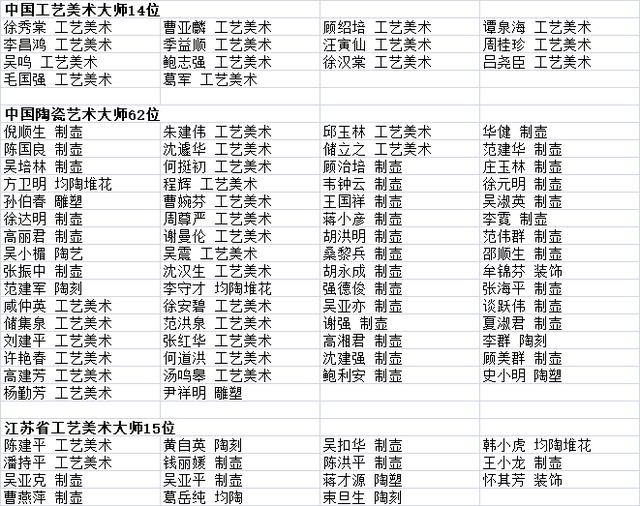 中国工艺美术大师14位
徐秀棠 工艺美术 曹亚麟 工艺美术 顾绍培 工艺美术 谭泉海 工艺美术
李昌鸿 工艺美术 季益顺 工艺美术 汪寅仙 工艺美术 周桂珍 工艺美术
吴鸣 工艺美术 鲍志强 工艺美术 徐汉棠 工艺美术 吕尧臣 工艺美术
毛国强 工艺美术 葛军 工艺美术
中国陶瓷艺术大师62位
倪顺生 制壶 朱建伟 工艺美术 邱玉林 工艺美术 华健 制壶
陈国良 制壶 沈遽华 工艺美术 储立之 工艺美术 范建华 制壶
吴培林 制壶 何挺初 工艺美术 顾治培 制壶 庄玉林 制壶
方卫明 均陶堆花 程辉 工艺美术 韦钟云 制壶 徐元明 制壶
孙伯春 雕塑 曹婉芬 工艺美术 王国祥 制壶 吴淑英 制壶
徐达明 制壶 周尊严 工艺美术 蒋小彦 制壶 李霓 制壶
高丽君 制壶 谢曼伦 工艺美术 胡洪明 制壶 范伟群 制壶
吴小楣 陶艺 吴震 工艺美术 桑黎兵 制壶 邵顺生 制壶
张振中 制壶 沈汉生 工艺美术 胡永成 制壶 牟锦芬 装饰
范建军 陶刻 李守才 均陶堆花 强德俊 制壶 张海平 制壶
咸仲英 工艺美术 徐安碧 工艺美术 吴亚亦 制壶 谈跃伟 制壶
储集泉 工艺美术 范洪泉 工艺美术 谢强 制壶 夏淑君 制壶
刘建平 工艺美术 张红华 工艺美术 高湘君 制壶 李群 陶刻
许艳春 工艺美术 何道洪 工艺美术 沈建强 制壶 顾美群 制壶
高建芳 工艺美术 汤鸣皋 工艺美术 鲍利安 制壶 史小明 陶塑
杨勤芳 工艺美术 尹祥明 雕塑
江苏省工艺美术大师15位
陈建平 工艺美术 黄自英 陶刻 吴扣华 制壶 韩小虎 均陶堆花
潘持平 工艺美术 钱丽媛 制壶 陈洪平 制壶 王小龙 制壶
吴亚克 制壶 吴亚平 制壶 蒋才源 陶塑 怀其芳 装饰
曹燕萍 制壶 葛岳纯 均陶 束旦生 陶刻